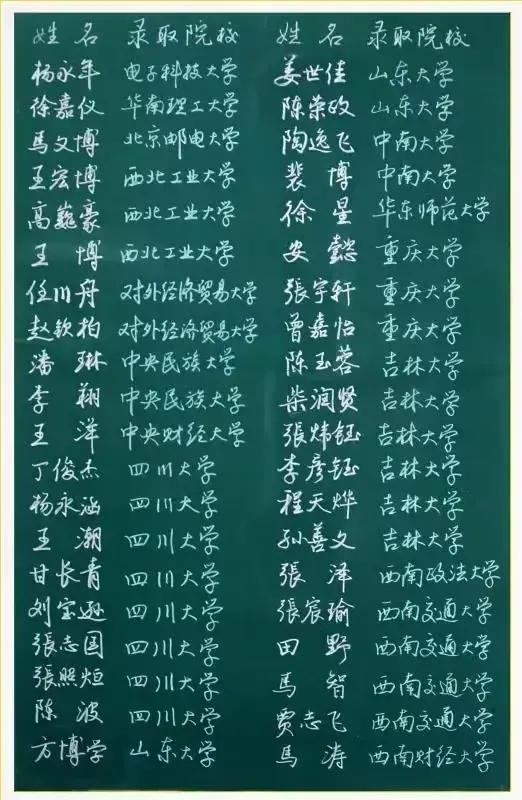 姓名 录取院校 姓名 录取院校
杨永年 电子科技大学 姜世佳 山东大学
徐嘉仪 华南理工大学 陈荣政 山东大学
马文博 北京邮电大学 陶逸飞 中南大学
王宏博 西北工业大学 裴博 中南大学
高巍豪 西北工业大学 徐星 华东师范大学
王博 西北工业大学 安懿 重庆大学
任川舟 对外经济贸易大学 張宇轩 重庆大学
赵钦柏 对外经济贸易大学 曾嘉怡 重庆大学
潘琳 中央民族大学 陈玉蓉 吉林大学
李翔 中央民族大学 柴润贤 吉林大学
王洋 中央财经大学 張炜钰 吉林大学
丁俊杰 四川大学 李彦钰 吉林大学
杨永涵 四川大学 程天烨 吉林大学
王潮 四川大学 孙善文 吉林大学
甘长青 四川大学 張泽 西南政法大学
刘宝逊 四川大学 張宸瑜 西南交通大学
張志国 四川大学 田野 西南交通大学
張照烜 四川大学 馬智 西南交通大学
陈波 四川大学 贾志飞 西南交通大学
方博学 山东大学 馬涛 西南财经大学